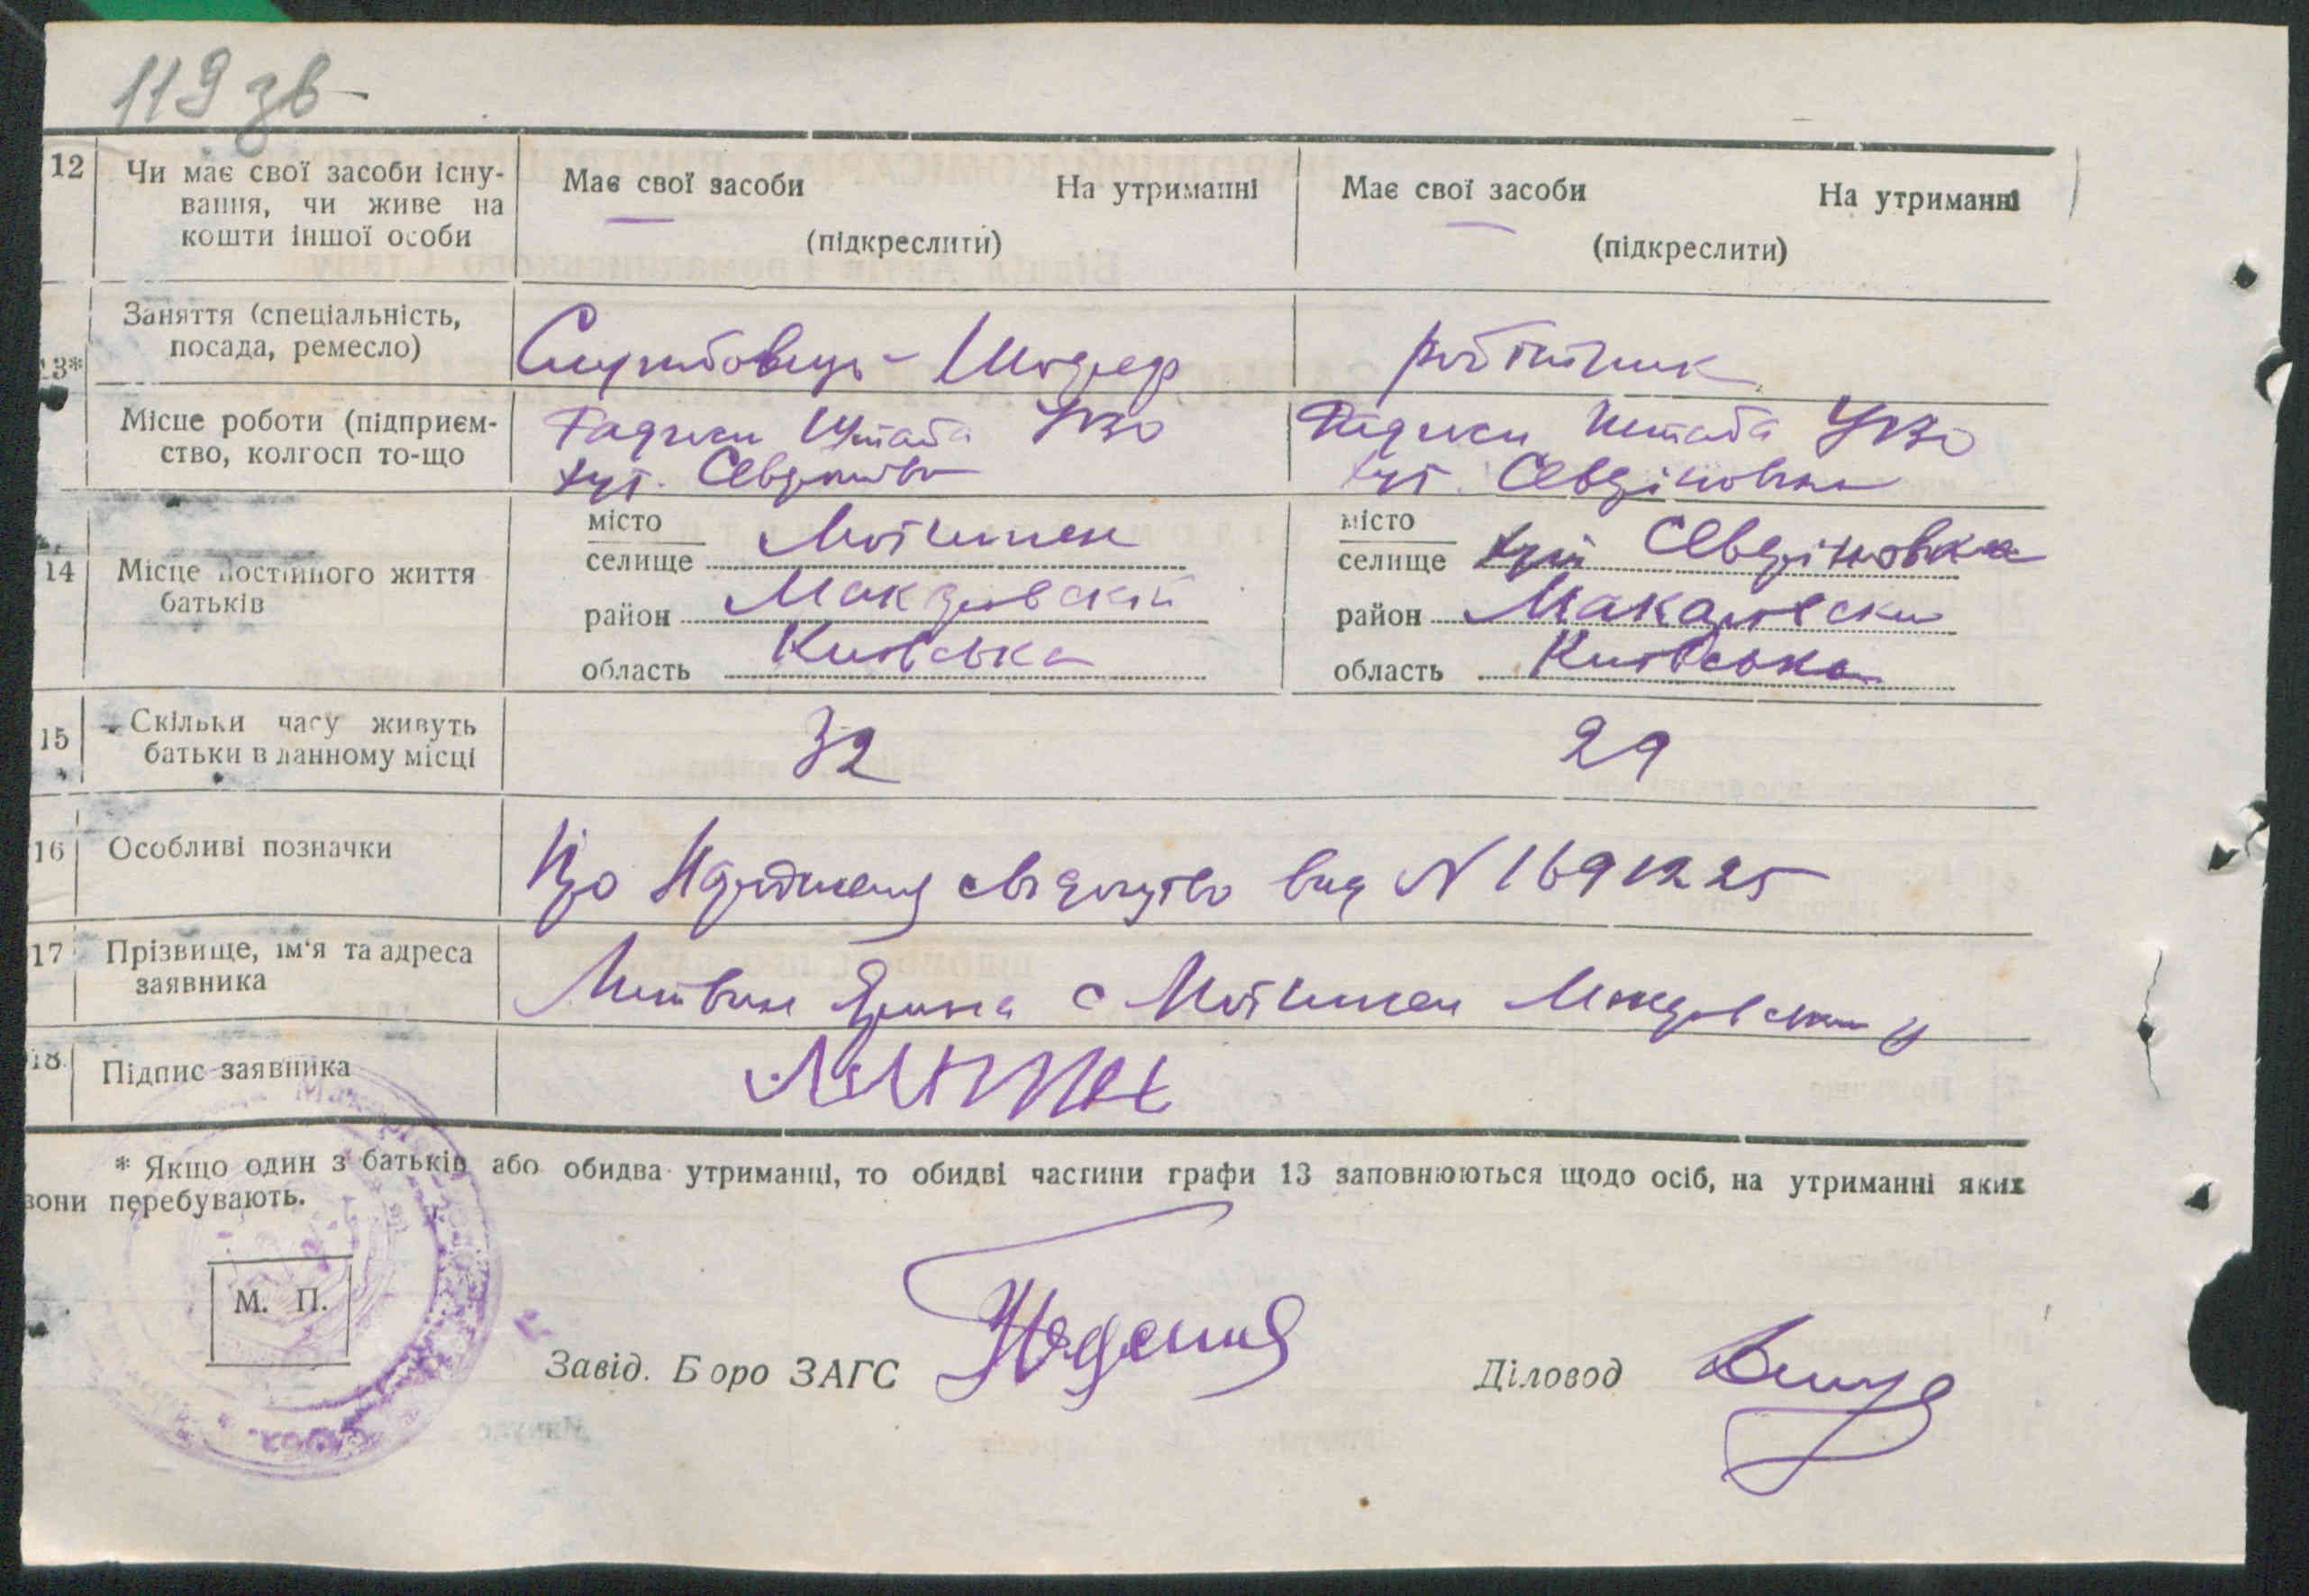 119 зв
12 Чи має свої засоби існу- Має свої засоби На утриманні Має свої засоби На утриманні
вання, чи живе на
кошти іншої особи (підкреслити) (підкреслити)
Заняття (спеціальність,
посада, ремесло) Службовець - Шофер робітник
13*
Місце роботи (підприєм- Штаба УВО Штаба УВО
ство, колгосп то-що хут. хут. Севериновка
місто місто
селище Мотижен селище хут Севериновка
14 Місце постійного життя
батьків район Макаровский район Макаровски
область Киівська область Киівська
15 Скільки часу живуть
батьки в данному місці 32 29
16 Особливі позначки Про народження свідоцтво вид N 1691225
17 Прізвище, ім'я та адреса
заявника Литвин с Мотижен
18. Підпис заявника
* Якщо один з батьків або обидва утриманці, то обидві частини графи 13 заповнюються щодо осіб, на утриманні яких
вони перебувають.
М. П.
Завід. Б оро ЗАГС
Діловод